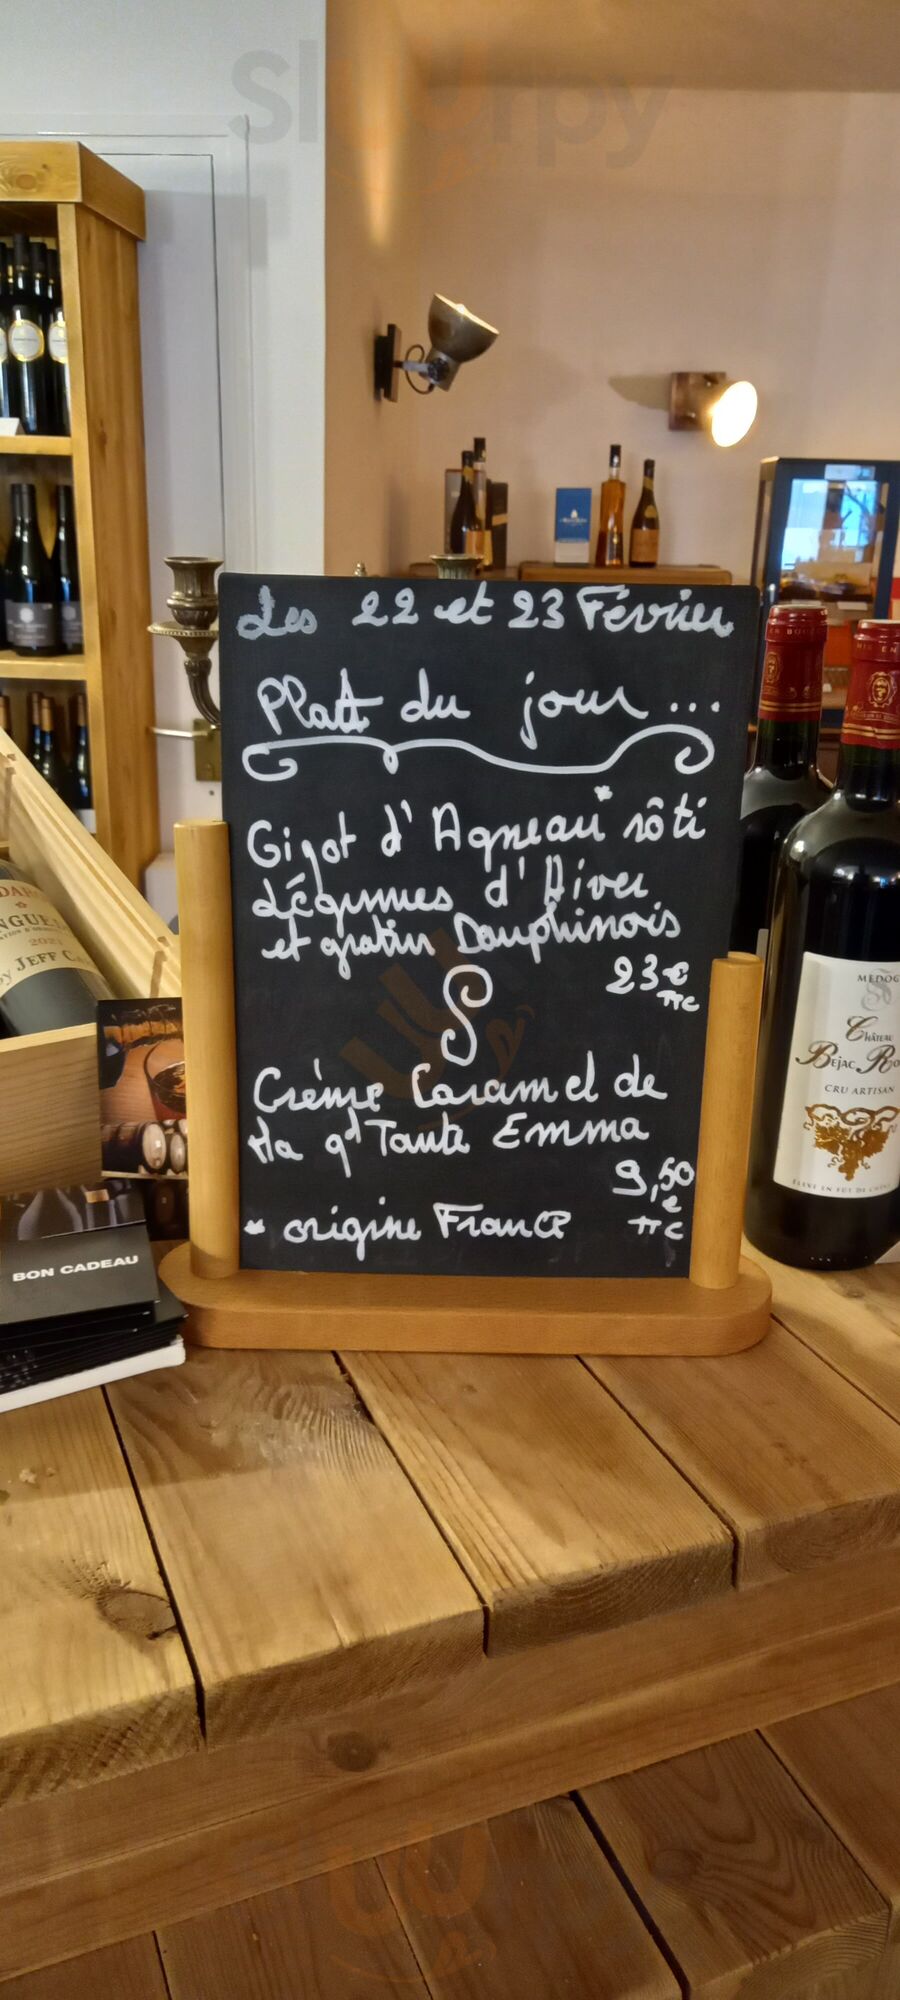 Sluurpy
Les 22 et 23 Février
Plat du jour ...
Gigot d'Agneau* rôti
Légumes d'Hiver
et gratin Dauphinois
23€
TTC
Crème Caramel de
Ma gd Tante Emma
9,50
€
TTC
* origine France
BON CADEAU
2021
by JEFF CA
MEDOC
CHÂTEAU
BEJAC RO
CRU ARTISAN